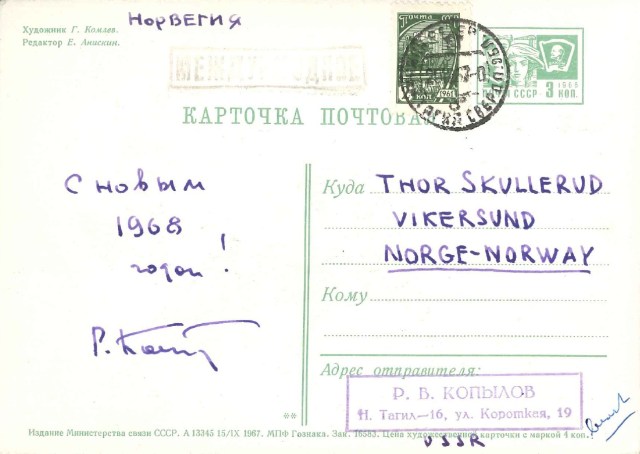 Художник Г. Комлев.
Редактор Е. Анискин.
НОРВЕГИЯ
МЕЖДУНАРОДНОЕ
ПОЧТА
КОП. 1961
СССР 3 1966 КОП.
КАРТОЧКА ПОЧТОВАЯ
С НОВЫМ
1968
годом!
Куда THOR SKULLERUD
VIKERSUND
NORGE-NORWAY
Кому
Адрес отправителя:
Р. В. КОПЫЛОВ
Н. Тагил—16, ул. Короткая, 19
**
Издание Министерства связи СССР. А 13345 15/IX 1967. МПФ Гознака. Зак. 16583. Цена художественной карточки с маркой 4 коп.
USSR